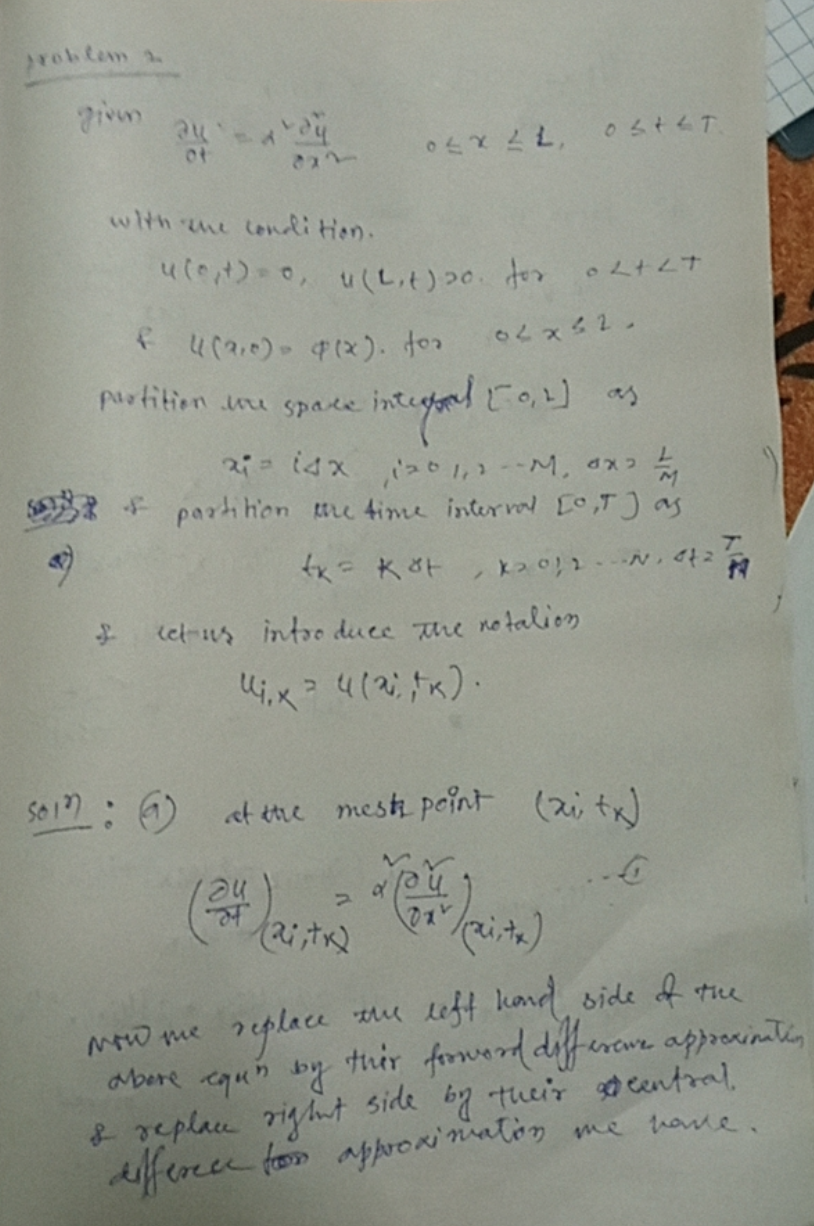 problem 2
given ∂u/∂t = α² ∂²u/∂x² 0 ≤ x ≤ L, 0 ≤ t ≤ T.
with the condition.
u(0,t) = 0, u(L,t) = 0. for 0 < t < T
& u(x,0) = φ(x). for 0 ≤ x ≤ L.
partition the space integral [0,L] as
xi = iΔx , i = 0, 1, 2 -- M, Δx = L/M
& partition the time interval [0,T] as
a)
tK = KΔt , K = 0, 1, 2 ... N, Δt = T/N
& let us introduce the notation
ui,K = u(xi, tK).
Solⁿ : (a) at the mesh point (xi, tK)
(∂u/∂t)(xi, tK) = α² (∂²u/∂x²)(xi, tK) ...①
Now we replace the left hand side of the
above equⁿ by their forword difference approximation
& replace right side by their central
differece approximation we have.